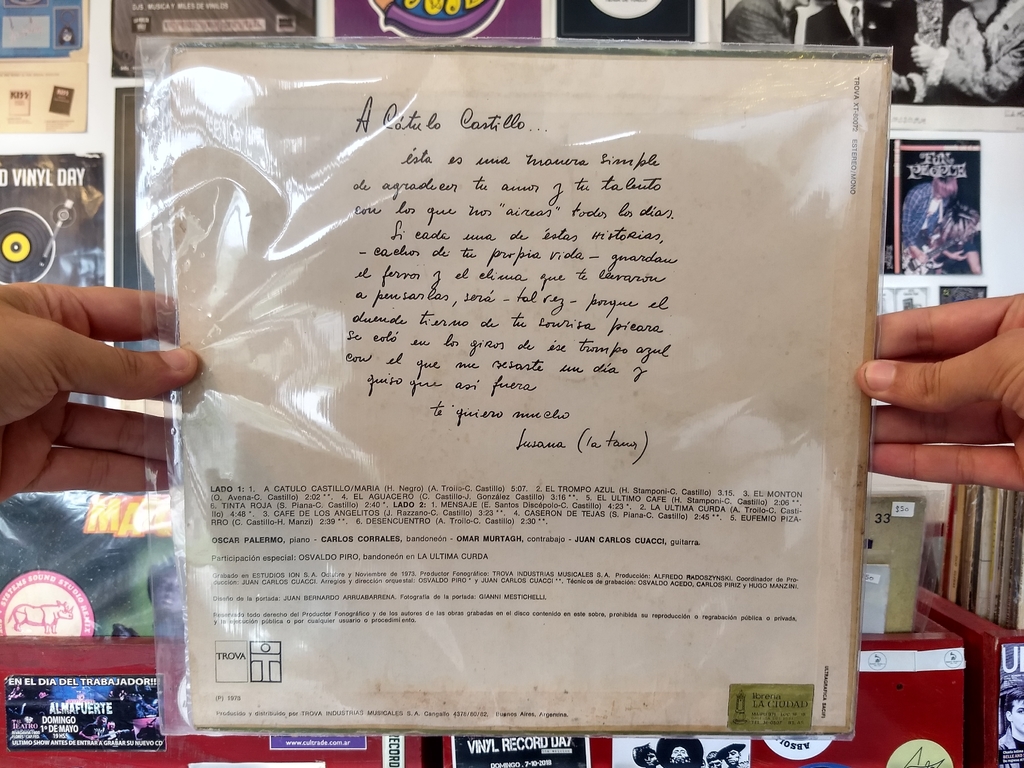 DJS, MUSICA Y MILES DE VINILOS
KISS
D VINYL DAY
FUN PEOPLE
TROVA XT-80072 ESTEREO/MONO
A Cátulo Castillo...
ésta es una manera simple
de agradecer tu amor y tu talento
con los que nos "aireas" todos los días.
Si cada una de éstas historias,
- cachos de tu propia vida - guardan
el fervor y el clima que te llevaron
a pensarlas, será - tal vez - porque el
duende tierno de tu sonrisa pícara
se coló en los giros de ése trompo azul
con el que me besaste un día y
quiso que así fuera
te quiero mucho
Susana (la tana)
LADO 1: 1. A CATULO CASTILLO/MARIA (H. Negro) (A. Troilo-C. Castillo) 5:07. 2. EL TROMPO AZUL (H. Stamponi-C. Castillo) 3.15. 3. EL MONTON
(O. Avena-C. Castillo) 2:02 **. 4. EL AGUACERO (C. Castillo-J. González Castillo) 3:16 **. 5. EL ULTIMO CAFE (H. Stamponi-C. Castillo) 2:06 **.
6. TINTA ROJA (S. Piana-C. Castillo) 2:40 *. LADO 2: 1. MENSAJE (E. Santos Discépolo-C. Castillo) 4:23 *. 2. LA ULTIMA CURDA (A. Troilo-C. Casti-
llo) 4:48 *. 3. CAFE DE LOS ANGELITOS (J. Razzano-C. Castillo) 3:23 **. 4. CASERON DE TEJAS (S. Piana-C. Castillo) 2:45 **. 5. EUFEMIO PIZA-
RRO (C. Castillo-H. Manzi) 2:39 **. 6. DESENCUENTRO (A. Troilo-C. Castillo) 2:30 **.
OSCAR PALERMO, piano - CARLOS CORRALES, bandoneón - OMAR MURTAGH, contrabajo - JUAN CARLOS CUACCI, guitarra.
Participación especial: OSVALDO PIRO, bandoneón en LA ULTIMA CURDA
Grabado en ESTUDIOS ION S.A. Octubre y Noviembre de 1973. Productor Fonográfico: TROVA INDUSTRIAS MUSICALES S.A. Producción: ALFREDO RADOSZYNSKI. Coordinador de Pro-
ducción: JUAN CARLOS CUACCI. Arreglos y dirección orquestal: OSVALDO PIRO * y JUAN CARLOS CUACCI **. Técnicos de grabación: OSVALDO ACEDO, CARLOS PIRIZ y HUGO MANZINI.
Diseño de la portada: JUAN BERNARDO ARRUABARRENA. Fotografía de la portada: GIANNI MESTICHELLI.
Reservado todo derecho del Productor Fonográfico y de los autores de las obras grabadas en el disco contenido en este sobre, prohibida su reproducción o regrabación pública o privada,
y la ejecución pública o por cualquier usuario o procedimiento.
TROVA
(P) 1973
Producido y distribuido por TROVA INDUSTRIAS MUSICALES S.A. Cangallo 4378/80/82, Buenos Aires, Argentina.
librería
LA CIUDAD
33
$50
50
SYSTEMS SOUND STUDIO
EN EL DIA DEL TRABAJADOR!!!
ALMAFUERTE
DOMINGO
1º DE MAYO
19 HS.
TEATRO
ULTIMO SHOW ANTES DE ENTRAR A GRABAR SU NUEVO CD
www.cultrade.com.ar
RECORD
VINYL RECORD DAY
DOMINGO 7-10-2018